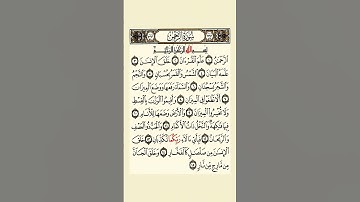 سُورَةُ الرَّحْمٰن
بِسْمِ اللَّهِ الرَّحْمٰنِ الرَّحِيمِ
الرَّحْمَٰنُ ۝١ عَلَّمَ الْقُرْءَانَ ۝٢ خَلَقَ الْإِنسَٰنَ ۝٣
عَلَّمَهُ الْبَيَانَ ۝٤ الشَّمْسُ وَالْقَمَرُ بِحُسْبَانٍ ۝٥ وَالنَّجْمُ
وَالشَّجَرُ يَسْجُدَانِ ۝٦ وَالسَّمَاءَ رَفَعَهَا وَوَضَعَ الْمِيزَانَ
۝٧ أَلَّا تَطْغَوْا فِي الْمِيزَانِ ۝٨ وَأَقِيمُوا الْوَزْنَ بِالْقِسْطِ
وَلَا تُخْسِرُوا الْمِيزَانَ ۝٩ وَالْأَرْضَ وَضَعَهَا لِلْأَنَامِ ۝١٠
فِيهَا فَٰكِهَةٌ وَالنَّخْلُ ذَاتُ الْأَكْمَامِ ۝١١ وَالْحَبُّ ذُو الْعَصْفِ
وَالرَّيْحَانُ ۝١٢ فَبِأَيِّ ءَالَاءِ رَبِّكُمَا تُكَذِّبَانِ ۝١٣ خَلَقَ
الْإِنسَٰنَ مِن صَلْصَٰلٍ كَالْفَخَّارِ ۝١٤ وَخَلَقَ الْجَانَّ
مِن مَّارِجٍ مِّن نَّارٍ ۝١٥